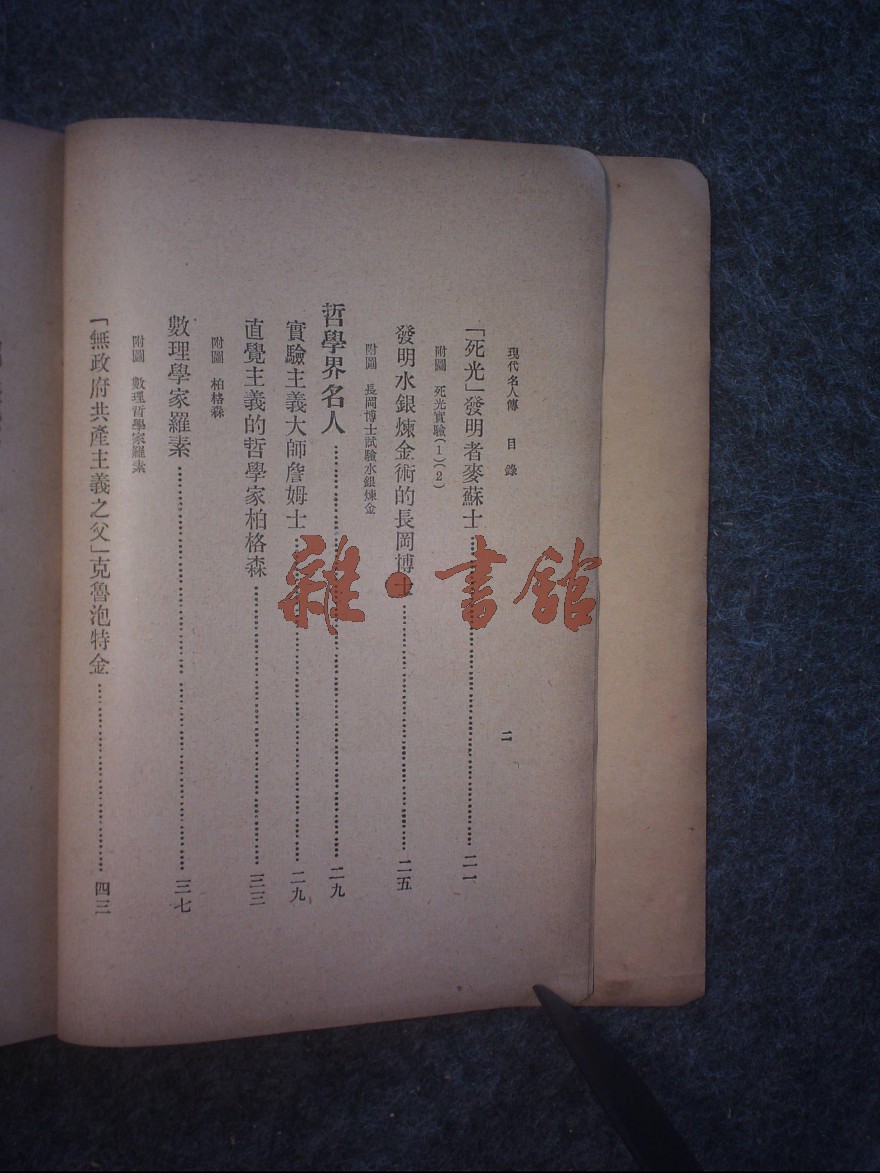 現代名人傳 目錄
二
「死光」發明者麥蘇士……二一
附圖 死光實驗(1)(2)
發明水銀煉金術的長岡博士……二五
附圖 長岡博士試驗水銀煉金
哲學界名人……二九
實驗主義大師詹姆士……二九
直覺主義的哲學家柏格森……三三
附圖 柏格森
數理學家羅素……三七
附圖 數理哲學家羅素
「無政府共產主義之父」克魯泡特金……四三
雜·書館